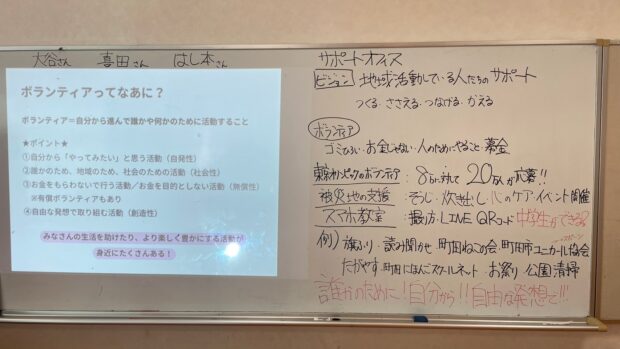 大谷さん 喜田さん はし本さん
ボランティアってなあに？
ボランティア＝自分から進んで誰かや何かのために活動すること
★ポイント★
①自分から「やってみたい」と思う活動（自発性）
②誰かのため、地域のため、社会のための活動（社会性）
③お金をもらわないで行う活動／お金を目的としない活動（無償性）
※有償ボランティアもあり
④自由な発想で取り組む活動（創造性）
みなさんの生活を助けたり、より楽しく豊かにする活動が
身近にたくさんある！
サポートオフィス
ビジョン 地域活動している人たちのサポート
つくる・ささえる・つなげる・かえる
ボランティア
ゴミひろい・お金じゃない・人のためにやること 募金
東京オリンピックのボランティア：8万に対して20万人が応募!!
被災地の支援：そうじ・炊き出し・心のケア・イベント開催
スマホ教室：撮り方・LINE QRコード 中学生ができる?
例）旗ふり・読み聞かせ 町田ねこの会・町田市ユニカール協会
たがやす・町田にほんごスクールネット・お祭り・公園清掃
誰かのために!自分から!!自由な発想で!!!